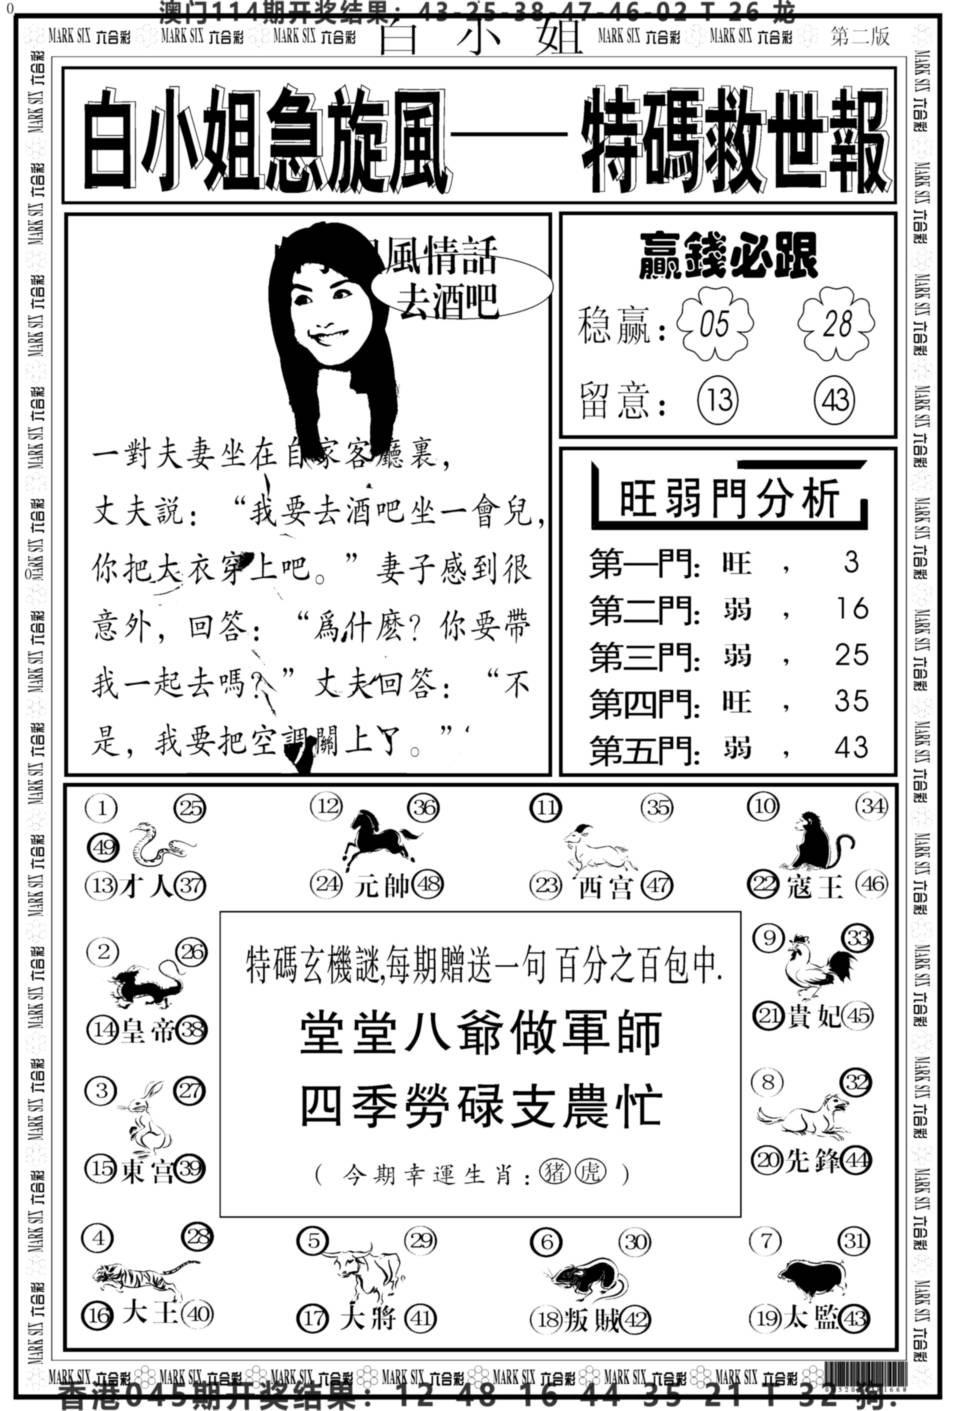 澳门114期开奖结果：43-25-38-47-46-02 T 26 龙
MARK SIX 六合彩 MARK SIX 六合彩 MARK SIX 六合彩 白小姐 MARK SIX 六合彩 MARK SIX 六合彩 第二版
白小姐急旋風——特碼救世報
風情話
去酒吧
一對夫妻坐在自家客廳裏，
丈夫説：“我要去酒吧坐一會兒，
你把大衣穿上吧。”妻子感到很
意外，回答：“爲什麽？你要帶
我一起去嗎？”丈夫回答：“不
是，我要把空調關上了。”
贏錢必跟
稳赢：05 28
留意：13 43
旺弱門分析
第一門：旺，3
第二門：弱，16
第三門：弱，25
第四門：旺，35
第五門：弱，43
1 25 12 36 11 35 10 34
49
13 才人 37 24 元帥 48 23 西宫 47 22 寇王 46
2 26
14 皇帝 38
3 27
15 東宫 39
特碼玄機謎,每期贈送一句百分之百包中.
堂堂八爺做軍師
四季勞碌支農忙
（今期幸運生肖：猪虎）
9 33
21 貴妃 45
8 32
20 先鋒 44
4 28 5 29 6 30 7 31
16 大王 40 17 大將 41 18 叛賊 42 19 太監 43
MARK SIX 六合彩 MARK SIX 六合彩 MARK SIX 六合彩 MARK SIX 六合彩 MARK SIX 六合彩 MARK SIX 六合彩 MARK SIX 六合彩
香港045期开奖结果：12-48-16-44-35-21 T 32 狗.